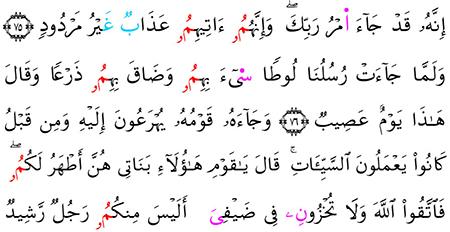 إِنَّهُۥ قَدْ جَآءَ امْرُ رَبِّكَۖ وَإِنَّهُمُۥٓ ءَاتِيهِمُۥ عَذَابٌ غَيْرُ مَرْدُودٖ ٧٥
وَلَمَّا جَآءَتْ رُسُلُنَا لُوطٗا سِےٓءَ بِهِمُۥ وَضَاقَ بِهِمُۥ ذَرْعٗا وَقَالَ
هَٰذَا يَوْمٌ عَصِيبٞ ٧٦ وَجَآءَهُۥ قَوْمُهُۥ يُهْرَعُونَ إِلَيْهِ وَمِن قَبْلُ
كَانُوا۟ يَعْمَلُونَ ٱلسَّيِّـَٔاتِۚ قَالَ يَٰقَوْمِ هَٰٓؤُلَآءِ بَنَاتِى هُنَّ أَطْهَرُ لَكُمُۥۖ
فَٱتَّقُوا۟ ٱللَّهَ وَلَا تُخْزُونِۦ فِى ضَيْفِىَ أَلَيْسَ مِنكُمُۥ رَجُلٞ رَّشِيدٞ